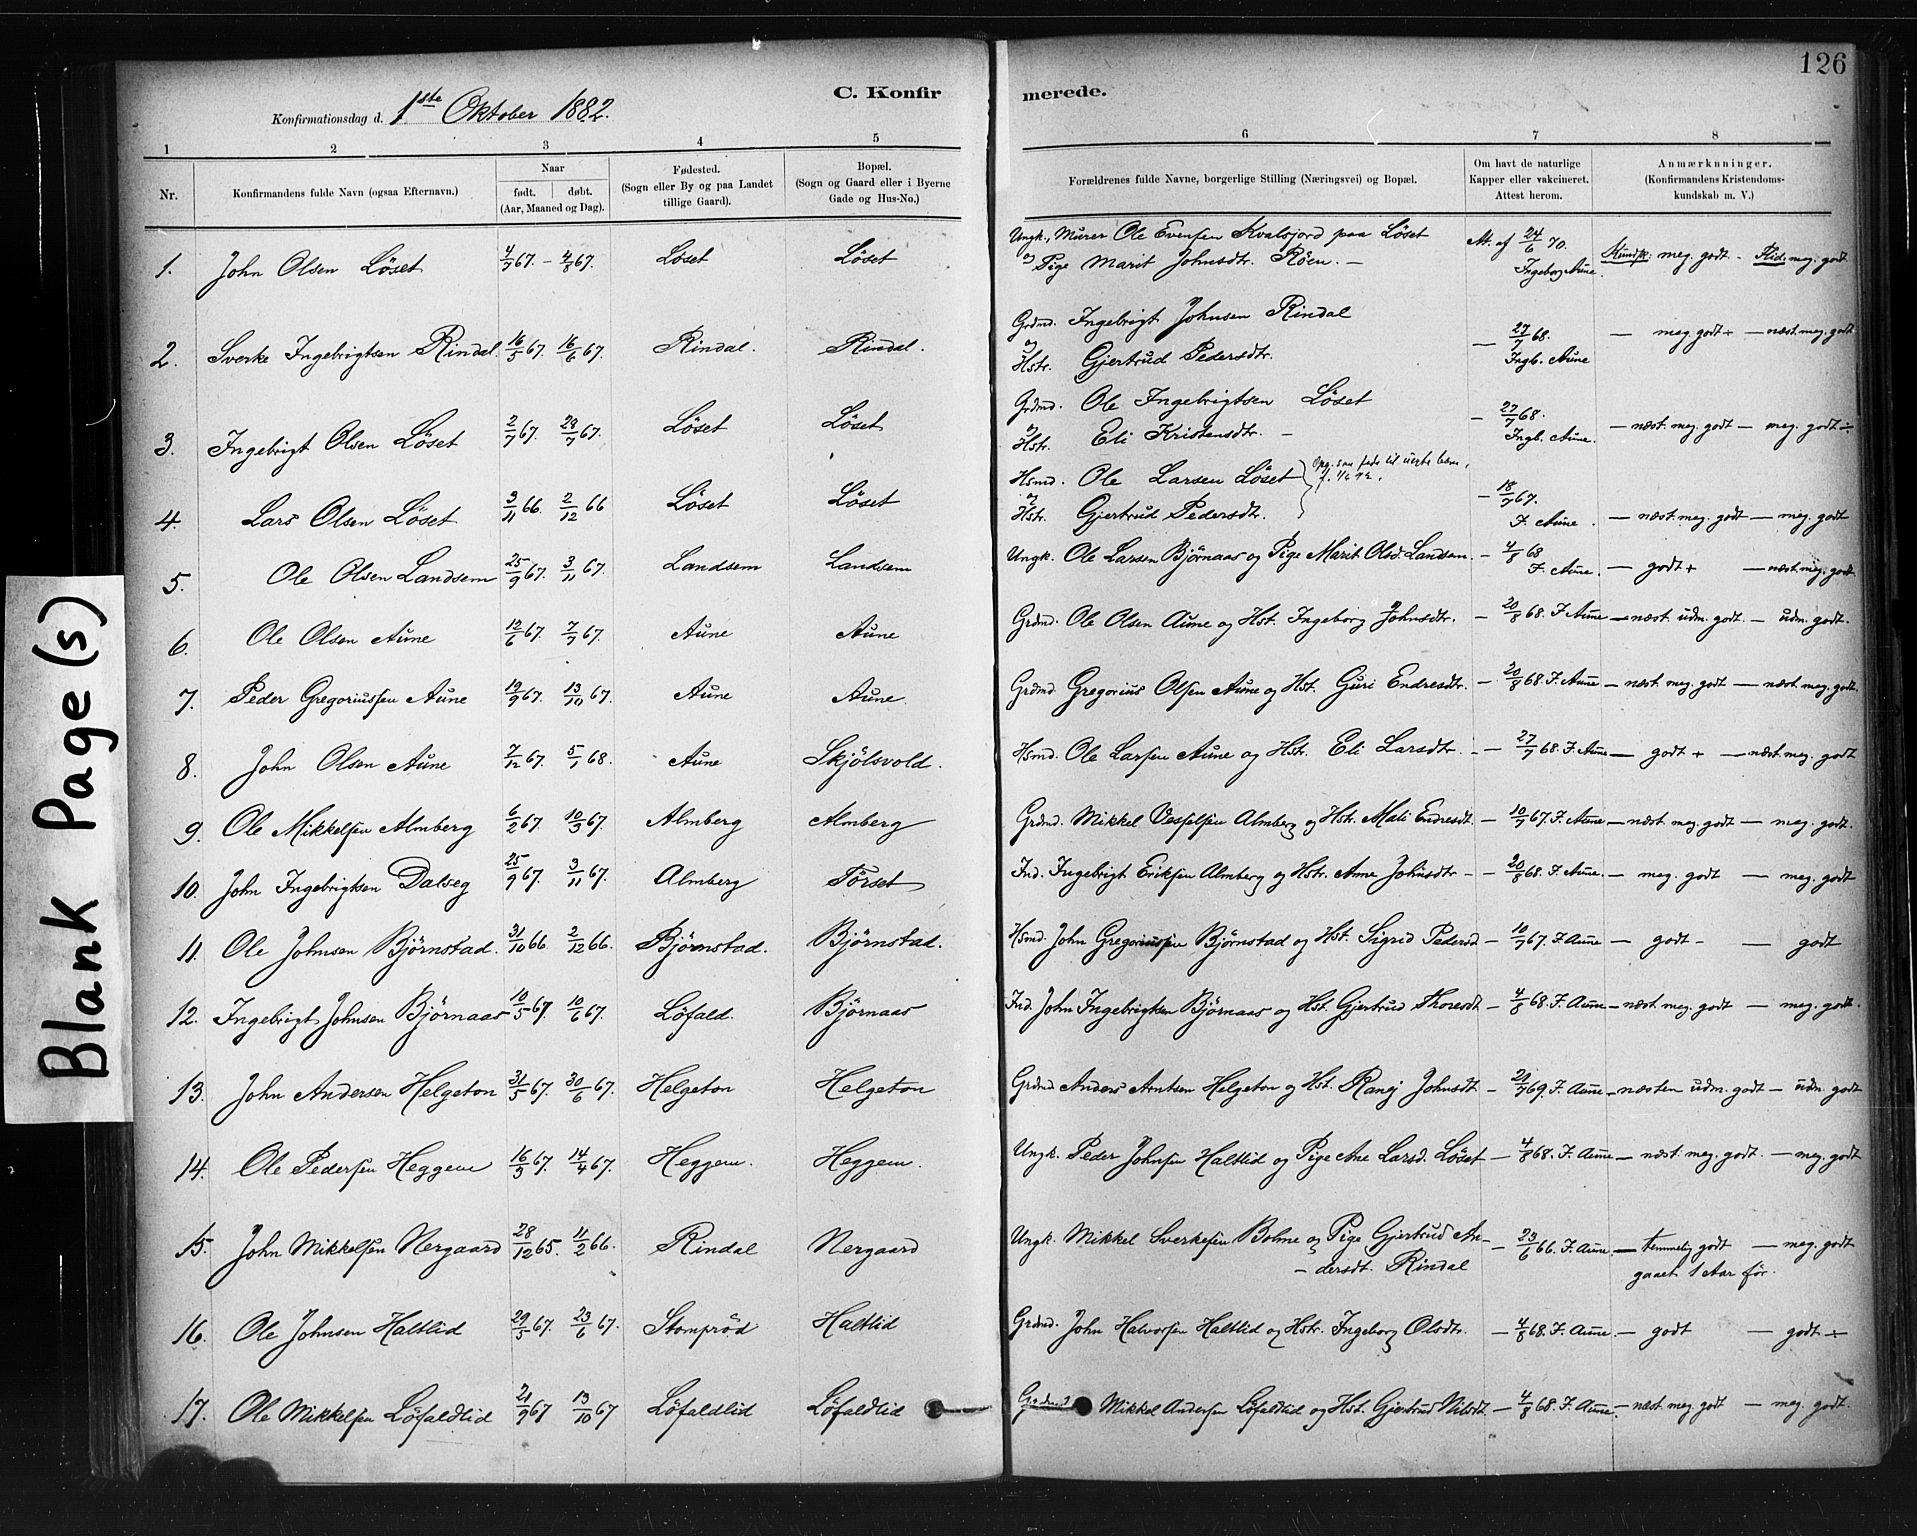 126
C. Konfirmerede.
Konfirmationsdag d. 1ste Oktober 1882.
1 2 3 4 5 6 7 8
Nr. Konfirmandens fulde Navn (ogsaa Efternavn.) Naar født. døbt. (Aar, Maaned og Dag). Fødested. (Sogn eller By og paa Landet tillige Gaard). Bopæl. (Sogn og Gaard eller i Byerne Gade og Hus-No.) Forældrenes fulde Navne, borgerlige Stilling (Næringsvei) og Bopæl. Om havt de naturlige Kapper eller vakcineret. Attest herom. Anmærkninger. (Konfirmandens Kristendomskundskab m. V.)
1. John Olsen Löset 4/7 67. - 4/8 67. Löset Löset Ungk., Murer Ole Evensen Kvalsjord paa Löset og Pige Marit Johnsdtr. Röen. - Att. af 24/6 70. Ingeborg Aune. Kundsk: meg. godt - Flid: meg. godt
2. Sverke Ingebrigtsen Rindal 16/5 67. 16/6 67. Rindal. Rindal. Grdmd. Ingebrigt Johnsen Rindal og Hstr. Gjertrud Pedersdtr. - 27/7 68. Ingb. Aune - meg. godt + - næst. meg. godt
3. Ingebrigt Olsen Löset 2/7 67. 28/7 67. Löset Löset Grdmd. Ole Ingebrigtsen Löset og Hstr. Eli Kristensdtr. - - 27/7 68. Ingb. Aune. - næst. meg. godt - meg. godt ÷
4. Lars Olsen Löset 3/11 66. 2/12 66 Löset Löset Hsmd. Ole Larsen Löset og Hstr. Gjertrud Pedersdtr. - 18/7 67. I. Aune. - næst. meg. godt - meg. godt
5. Ole Olsen Landsem 25/9 67. 3/11 67. Landsem Landsem Ungk. Ole Larsen Bjørnaas og Pige Marit Olsd. Landsem. - 4/8 68 I. Aune. - godt + - næst. meg. godt
6. Ole Olsen Aune 12/6 67. 7/7 67. Aune Aune Grdmd. Ole Olsen Aune og Hst. Ingeborg Johnsdtr. - 20/8 68. I. Aune - næst. udm. godt. - udm. godt.
7. Peder Gregoriussen Aune 19/9 67. 13/10 67. Aune Aune. Grdmd Gregorius Olsen Aune og Hst. Guri Endresdtr. - 20/8 68. I. Aune - næst. meg. godt - næst. meg. godt.
8. John Olsen Aune 7/12 67. 5/1 68. Aune Skjölsvold. Hsmd. Ole Larsen Aune og Hstr. Eli Larsdtr. - - 27/7 68. I. Aune - godt + - næst. meg. godt
9. Ole Mikkelsen Almberg 6/2 67. 10/3 67. Almberg Almberg Grdmd. Mikkel Vesselsen Almberg og Hstr. Mali Endresdt. - 10/7 67. I. Aune - næst. meg. godt - meg. godt.
10. John Ingebrigtsen Dalseg 25/9 67. 3/11 67. Almberg Törset Ind. Ingebrigt Eriksen Almberg og Hstr. Anne Johnsdtr - - 20/8 68. I. Aune. - meg. godt - meg. godt
11. Ole Johnsen Björnstad. 31/10 66 2/12 66. Björnstad. Björnstad. Hsmd. John Gregoriussen Björnstad og Hst. Sigrid Pedersd - 10/7 67. I. Aune - godt - - godt
12. Ingebrigt Johnsen Björnaas 10/5 67. 10/6 67. Löfald. Björnaas Ind. John Ingebrigtsen Björnaas og Hst. Gjertrud Thoresdt - 4/8 68. I. Aune - næst meg. godt - meg. godt.
13. John Andersen Helgeton 31/5 67. 30/6 67. Helgeton Helgeton Grdmd Anders Arntsen Helgeton og Hst. Ranej Johnsdt - 20/7 69. I. Aune - næsten udm. godt - udm. godt
14. Ole Pedersen Heggem 16/3 67. 14/4 67. Heggem. Heggem. Ungk. Peder Johnsen Haltlid og Pige Ane Larsd. Löset - 4/8 68. I. Aune - næst. meg. godt. - meg. godt
15. John Mikkelsen Nergaard 28/12 65. 11/2 66. Rindal Nergaard Ungk. Mikkel Sverkesen Bolme og Pige Gjertrud An- - dersdt. Rindal - 23/6 66. I. Aune. - temmelig godt gaaet 1 Aar før. - meg. godt
16. Ole Johnsen Haltlid 29/5 67. 23/6 67. Stomprød Haltlid Grdmd. John Halvorsen Haltlid og Hstr. Ingeborg Olsdtr. - 4/8 68. I. Aune. - godt - godt ÷
17. Ole Mikkelsen Löfaldlid 21/9 67 13/10 67 Löfaldlid Löfaldlid Mikkel Andersen Löfaldlid og Hst. Gjertrud Nilsdt. - 4/8 68. I. Aune. - næst meg. godt - meg. godt.
Blank Page(s)